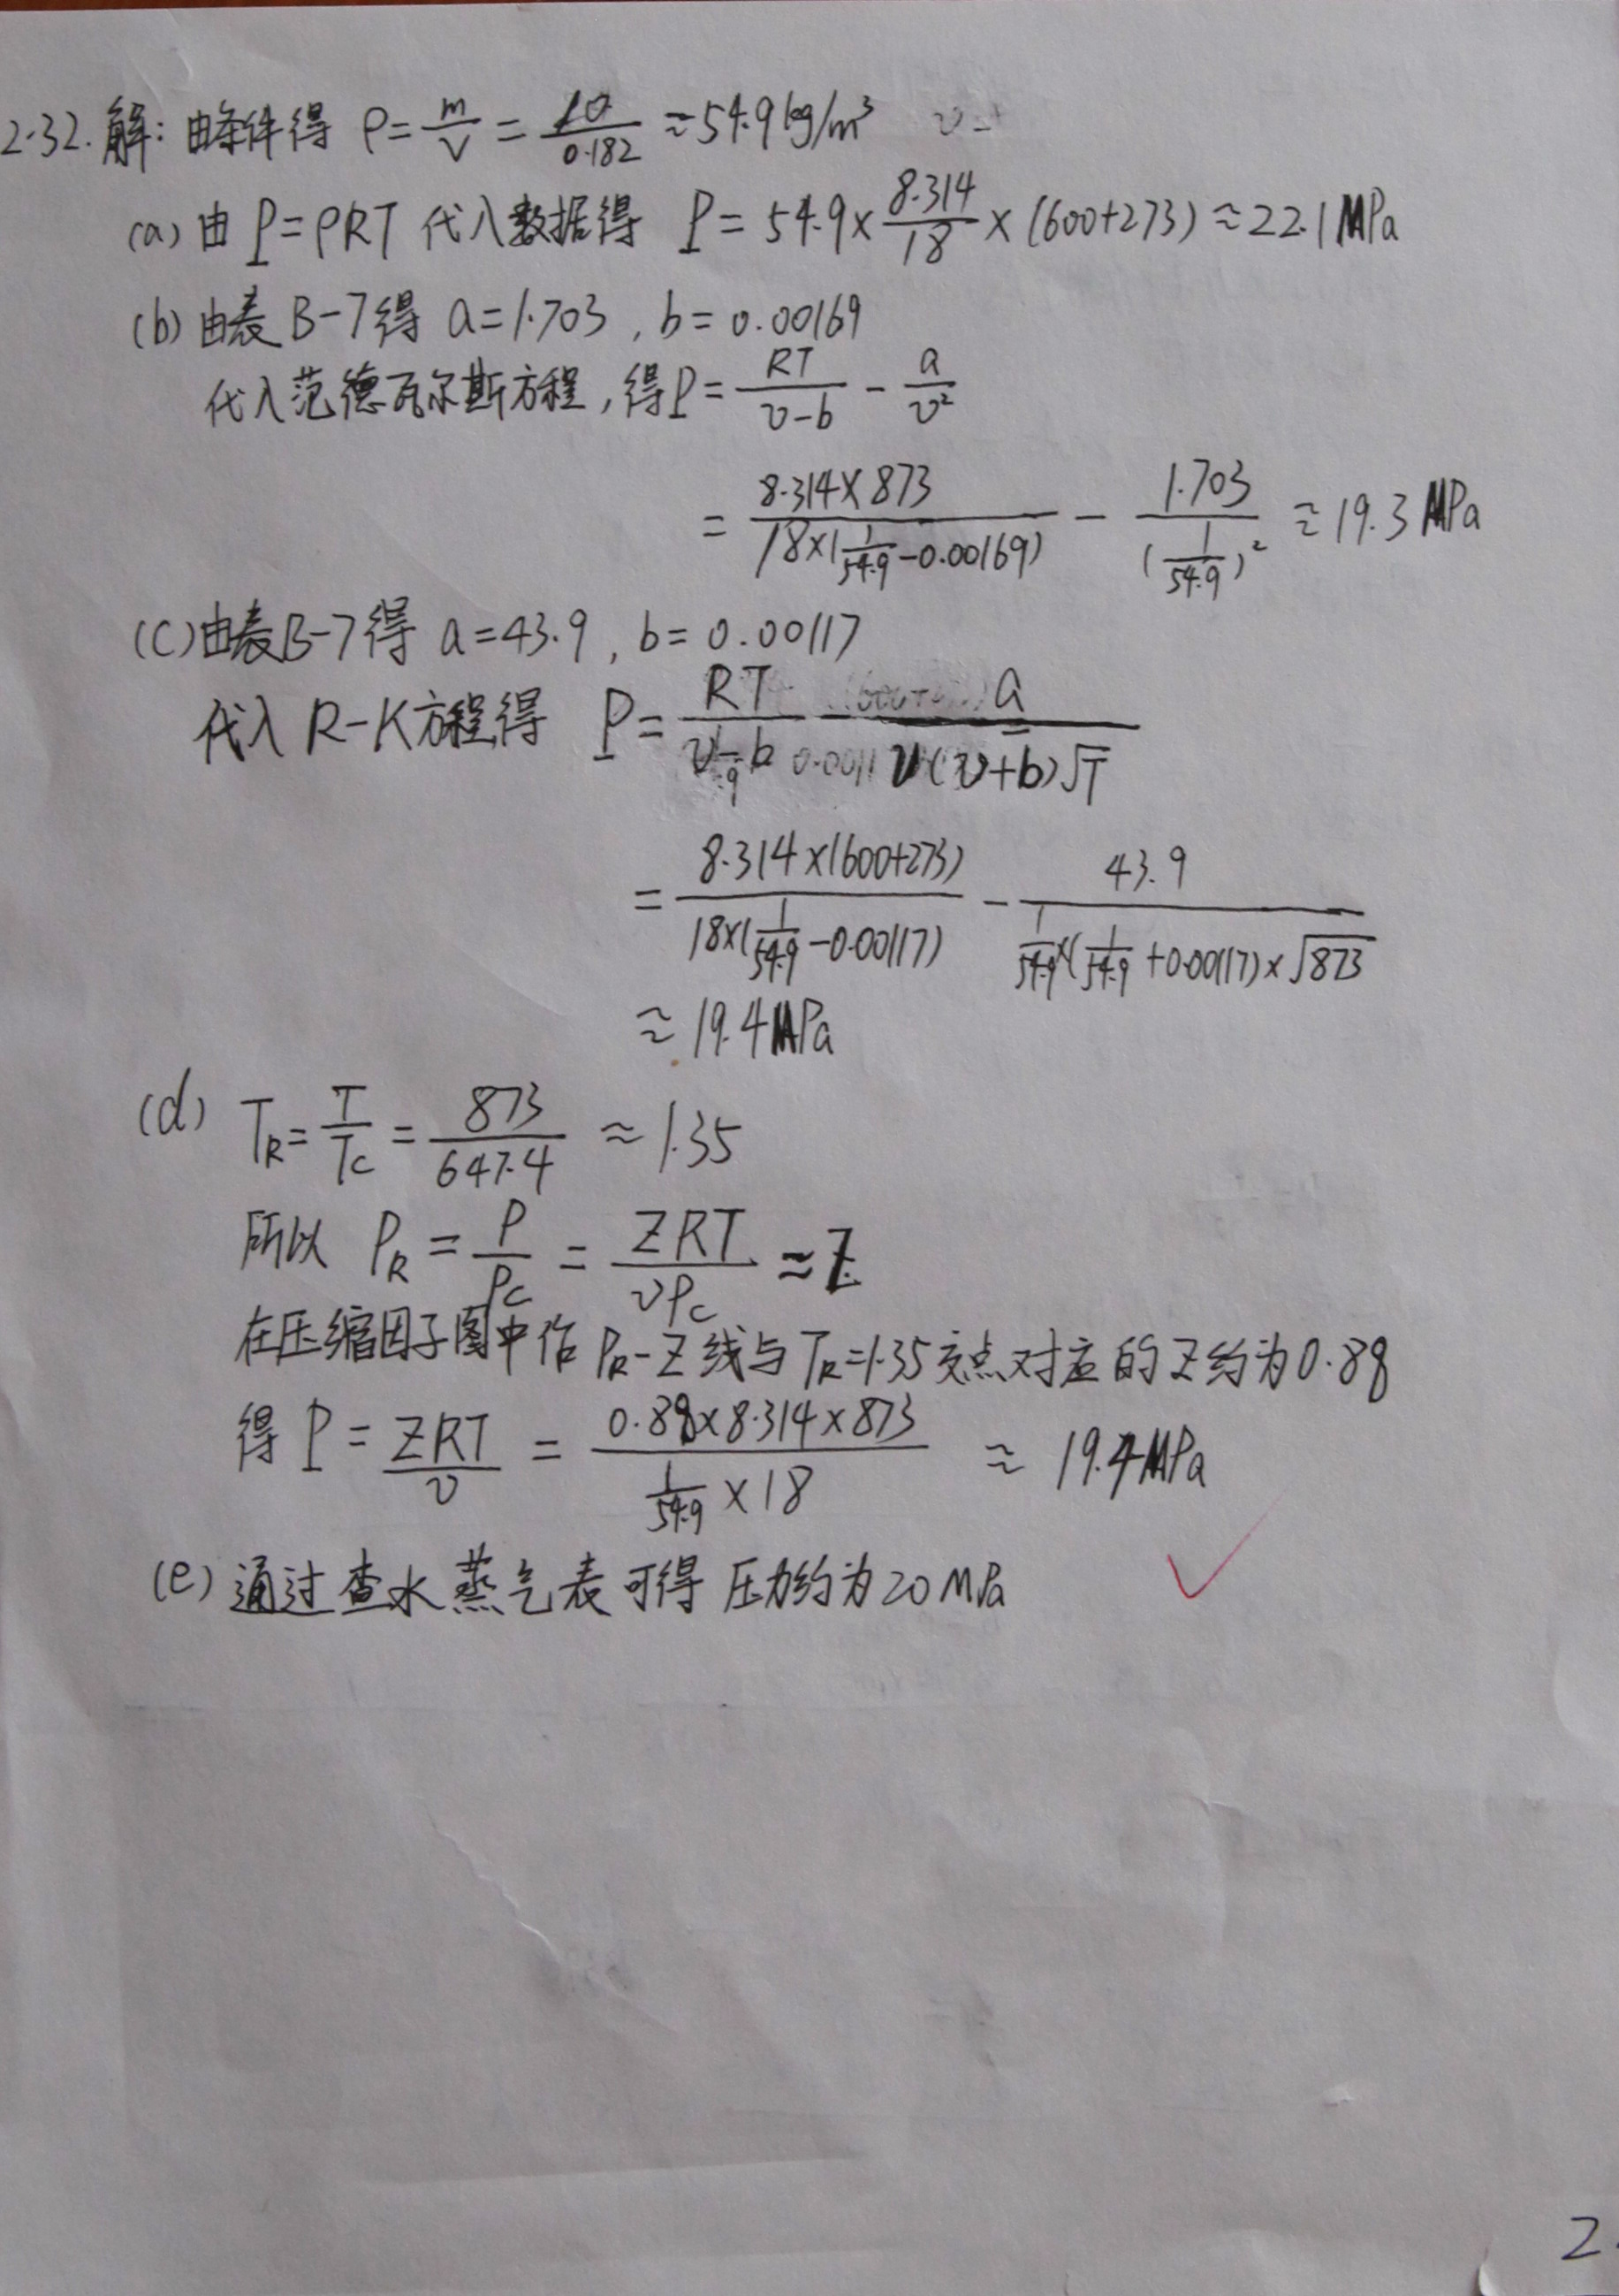 2.32. 解: 由条件得 ρ = m/V = 10/0.182 ≈ 54.9 kg/m³
(a) 由 P = ρRT 代入数据得 P = 54.9 × 8.314/18 × (600+273) ≈ 22.1 MPa
(b) 由表 B-7 得 a = 1.703 , b = 0.00169
代入范德瓦尔斯方程, 得 P = RT/(v-b) - a/v²
= (8.314×873)/(18×(1/54.9 - 0.00169)) - 1.703/(1/54.9)² ≈ 19.3 MPa
(C) 由表 B-7 得 a = 43.9 , b = 0.00117
代入 R-K 方程得 P = RT/(v-b) - a/(v(v+b)√T)
= (8.314×(600+273))/(18×(1/54.9 - 0.00117)) - 43.9/(1/54.9×(1/54.9 + 0.00117)×√873)
≈ 19.4 MPa
(d) T_R = T/T_c = 873/647.4 ≈ 1.35
所以 P_R = P/P_c = ZRT/(vP_c) ≈ Z
在压缩因子图中作 P_R-Z 线与 T_R=1.35 交点对应的 Z 约为 0.88
得 P = ZRT/v = (0.88×8.314×873)/(1/54.9 × 18) ≈ 19.4 MPa
(e) 通过查水蒸气表可得 压力约为 20 MPa
2.